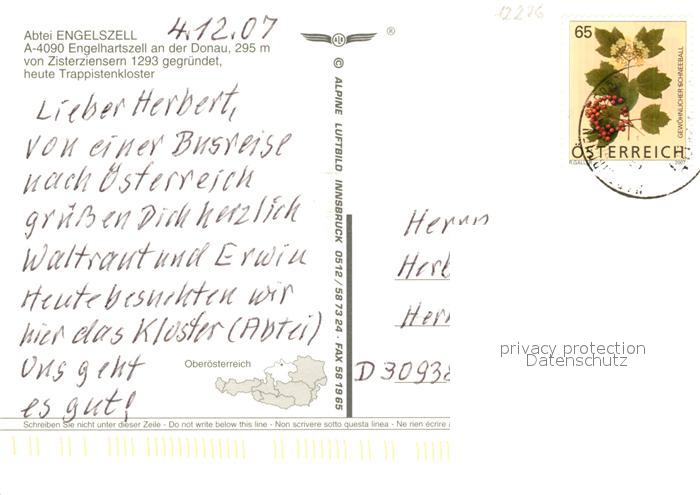 12226
Abtei ENGELSZELL
A-4090 Engelhartszell an der Donau, 295 m
von Zisterziensern 1293 gegründet,
heute Trappistenkloster
4.12.07
Lieber Herbert,
von einer Busreise
nach Österreich
grüßen Dich herzlich
Waltraut und Erwin
Heute besuchten wir
hier das Kloster (Abtei)
Uns geht
es gut!
Oberösterreich
®
© ALPINE LUFTBILD INNSBRUCK 0512 / 58 73 24 · FAX 58 19 65
65
GEWÖHNLICHER SCHNEEBALL
ÖSTERREICH
2007
Herrn
Herb
Her
D 30938
privacy protection
Datenschutz
Schreiben Sie nicht unter dieser Zeile - Do not write below this line - Non scrivere sotto questa linea - Ne rien écrire